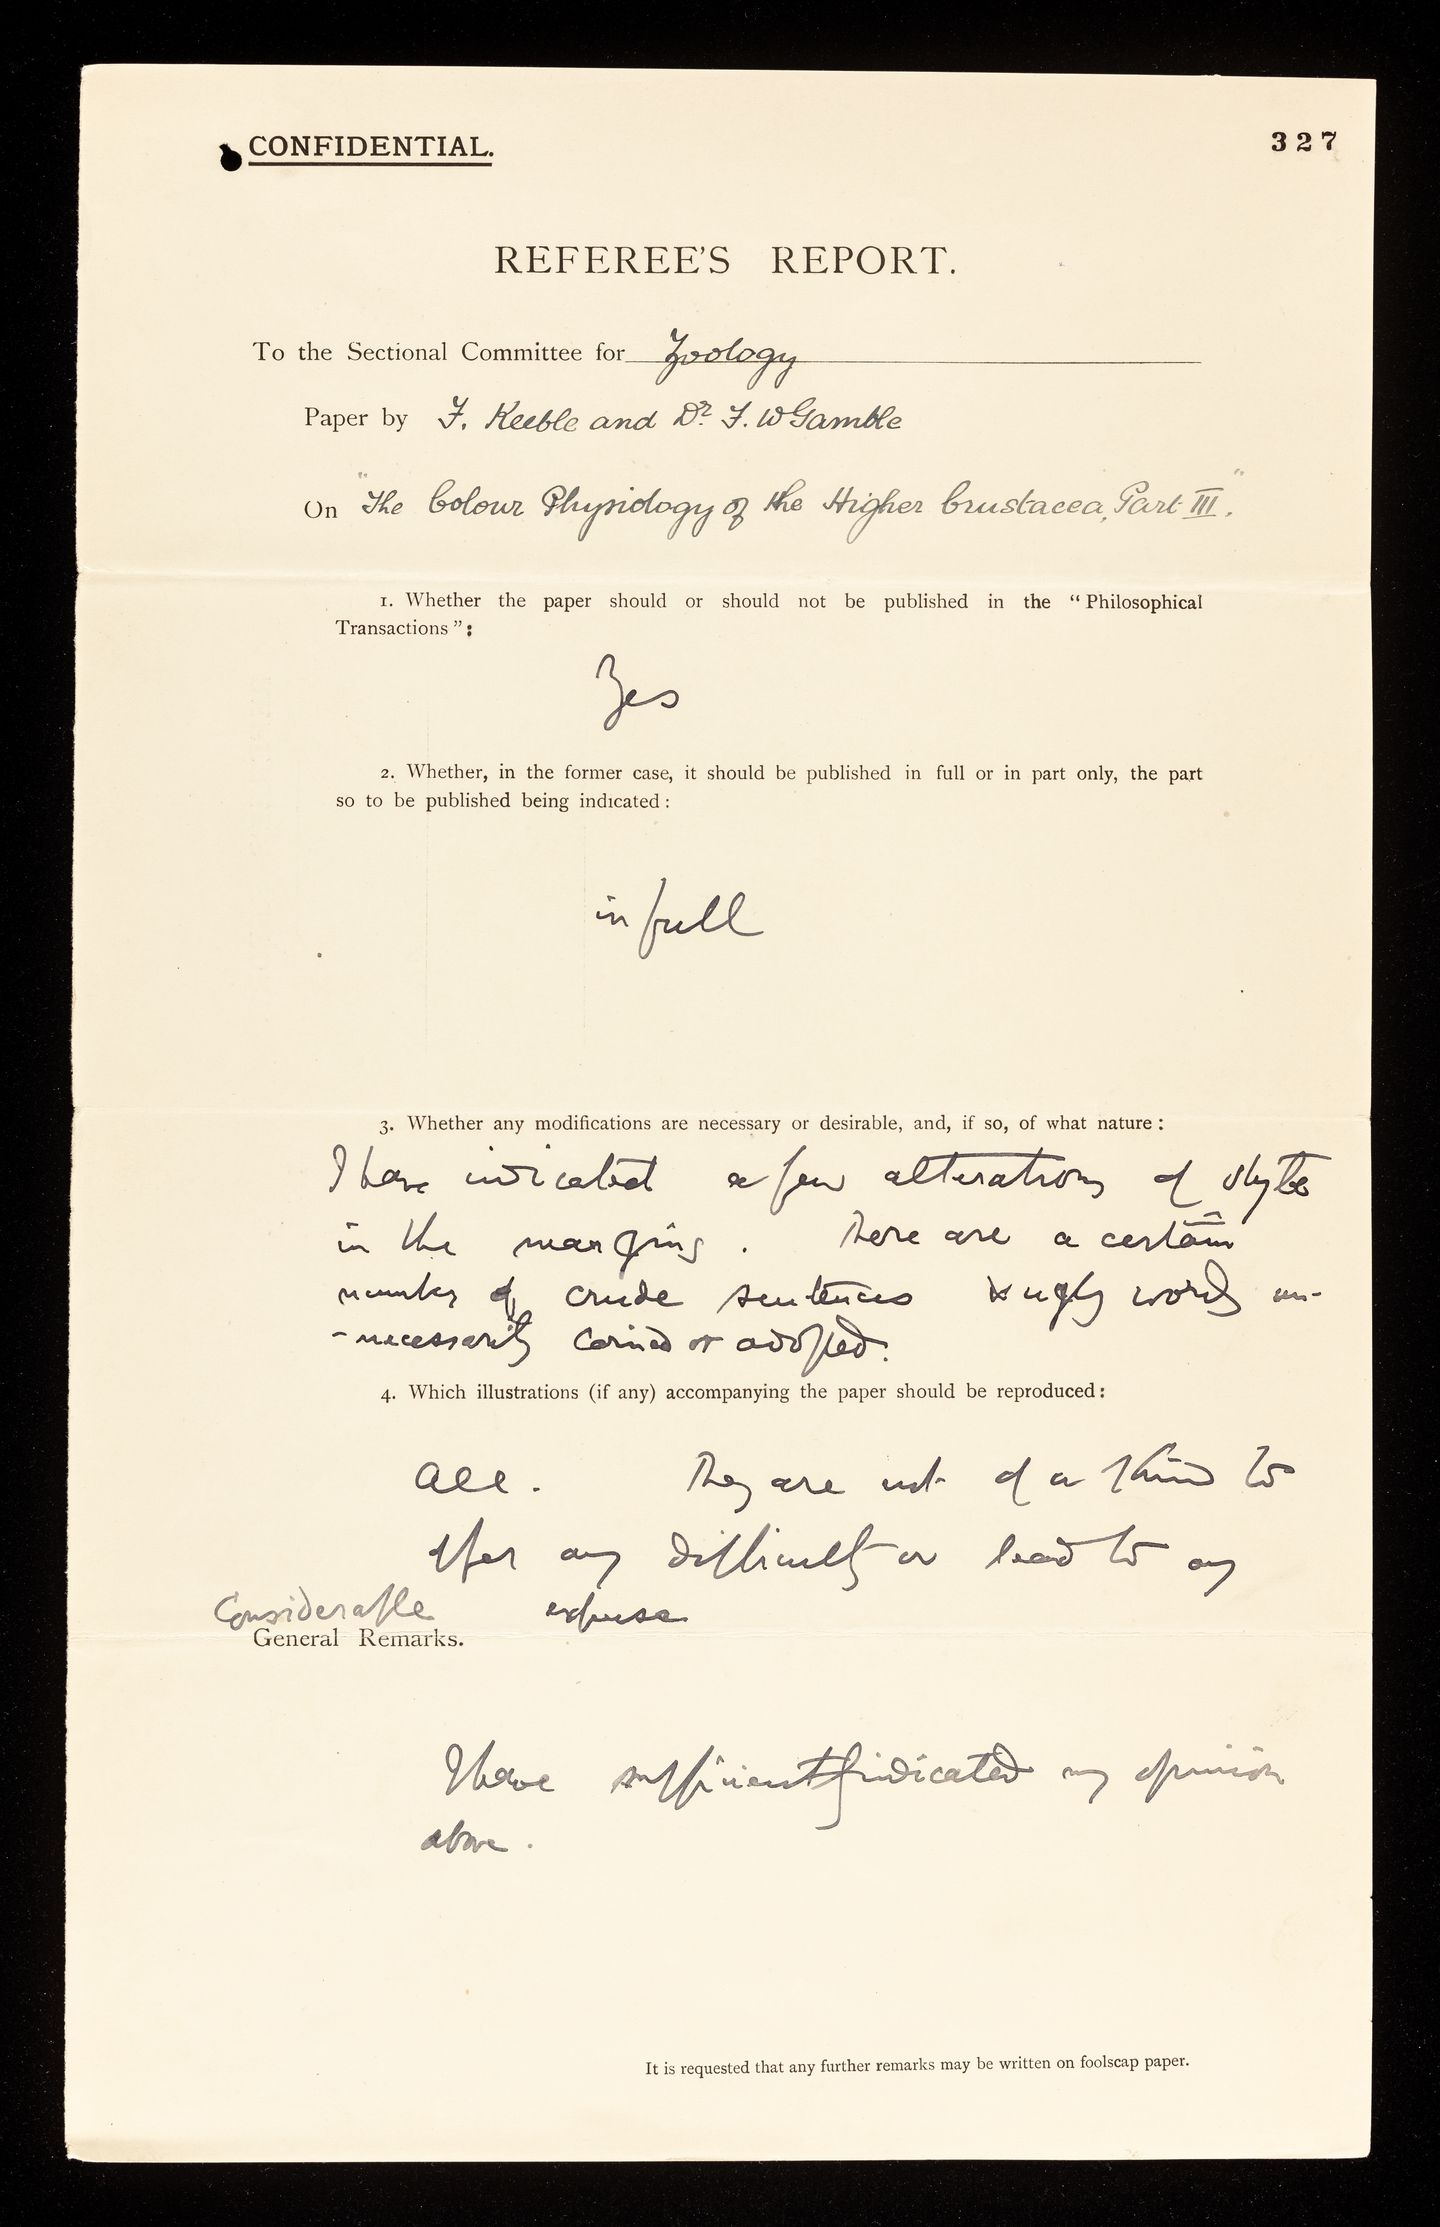 CONFIDENTIAL.
327
REFEREE'S REPORT.
To the Sectional Committee for Zoology
Paper by F. Keeble and Dr. F. W Gamble
On "The Colour Physiology of the Higher Crustacea, Part III".
1. Whether the paper should or should not be published in the "Philosophical
Transactions":
Yes
2. Whether, in the former case, it should be published in full or in part only, the part
so to be published being indicated:
in full
3. Whether any modifications are necessary or desirable, and, if so, of what nature:
I have indicated a few alterations of style
in the margins. There are a certain
number of crude sentences & ugly words un-
-necessarily coined or adopted.
4. Which illustrations (if any) accompanying the paper should be reproduced:
All. They are not of a kind to
offer any difficulty or lead to any
Considerable expense
General Remarks.
I have sufficiently indicated my opinion
above.
It is requested that any further remarks may be written on foolscap paper.